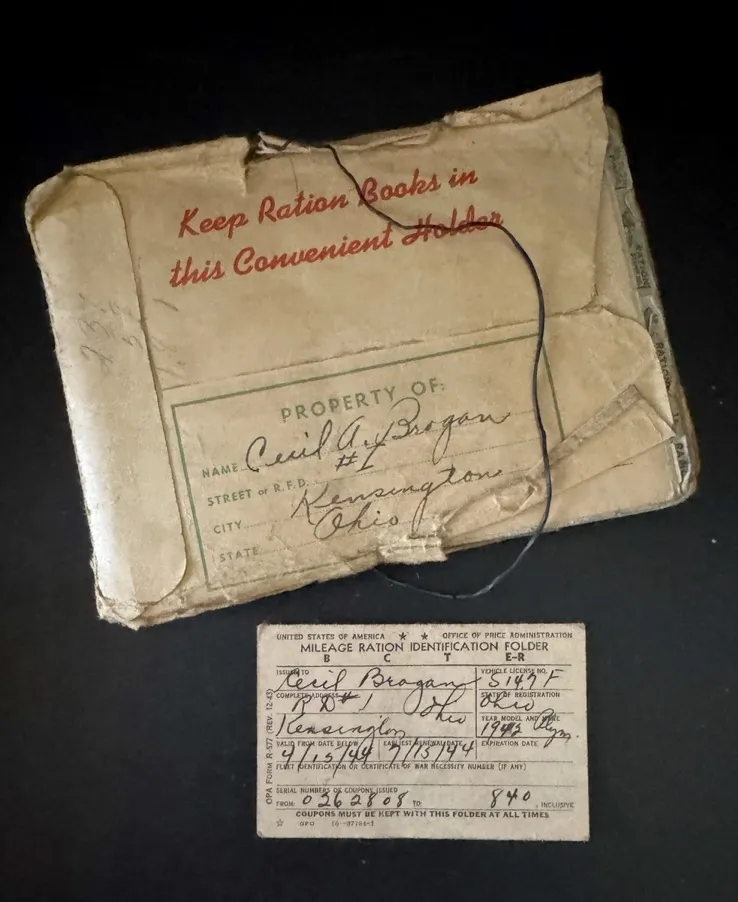 Keep Ration Books in
this Convenient Holder
PROPERTY OF:
NAME Cecil A. Brogan
STREET or R.F.D. #1
CITY Kensington
STATE Ohio
UNITED STATES OF AMERICA ★ ★ OFFICE OF PRICE ADMINISTRATION
MILEAGE RATION IDENTIFICATION FOLDER
B C T E-R
ISSUED TO Cecil Brogan
VEHICLE LICENSE NO. S147F
COMPLETE ADDRESS RD #1 Ohio
Kensington
STATE OF REGISTRATION Ohio
YEAR MODEL AND MAKE Plym.
VALID FROM DATE BELOW 4/15/44
EARLIEST RENEWAL DATE 7/15/44
EXPIRATION DATE
FLEET IDENTIFICATION OR CERTIFICATE OF WAR NECESSITY NUMBER (IF ANY)
SERIAL NUMBERS OF COUPONS ISSUED
FROM 0262808 TO 840, INCLUSIVE
COUPONS MUST BE KEPT WITH THIS FOLDER AT ALL TIMES
☆ GPO
OPA FORM R-577 (REV. 12-43)